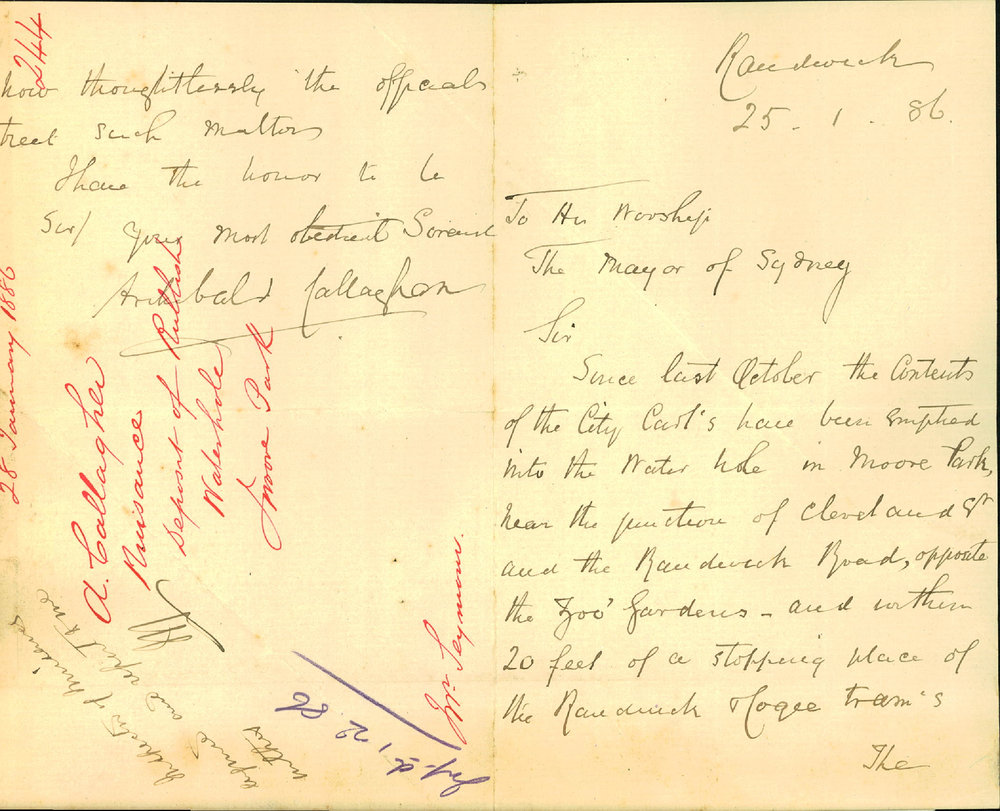 Randwick
25 . 1 . 86.
To His Worship
The Mayor of Sydney
Sir
Since last October the Contents
of the City Cart's have been emptied
into the Water hole in Moore Park,
near the junction of Cleveland St
and the Randwick Road, opposite
the Zoo' Gardens - and within
20 feet of a stopping place of
the Randwick & Coogee tram's
The
how thoughtlessly the officials
treat such matters
I have the honor to be
Sir/ your most obedient Servant
Archibald Callaghan
244
28 January 1886
A. Callagher
Nuisance
deposit of Rubbish
Waterhole
Moore Park
Mr Seymour.
Inspector of Nuisances
and report to me